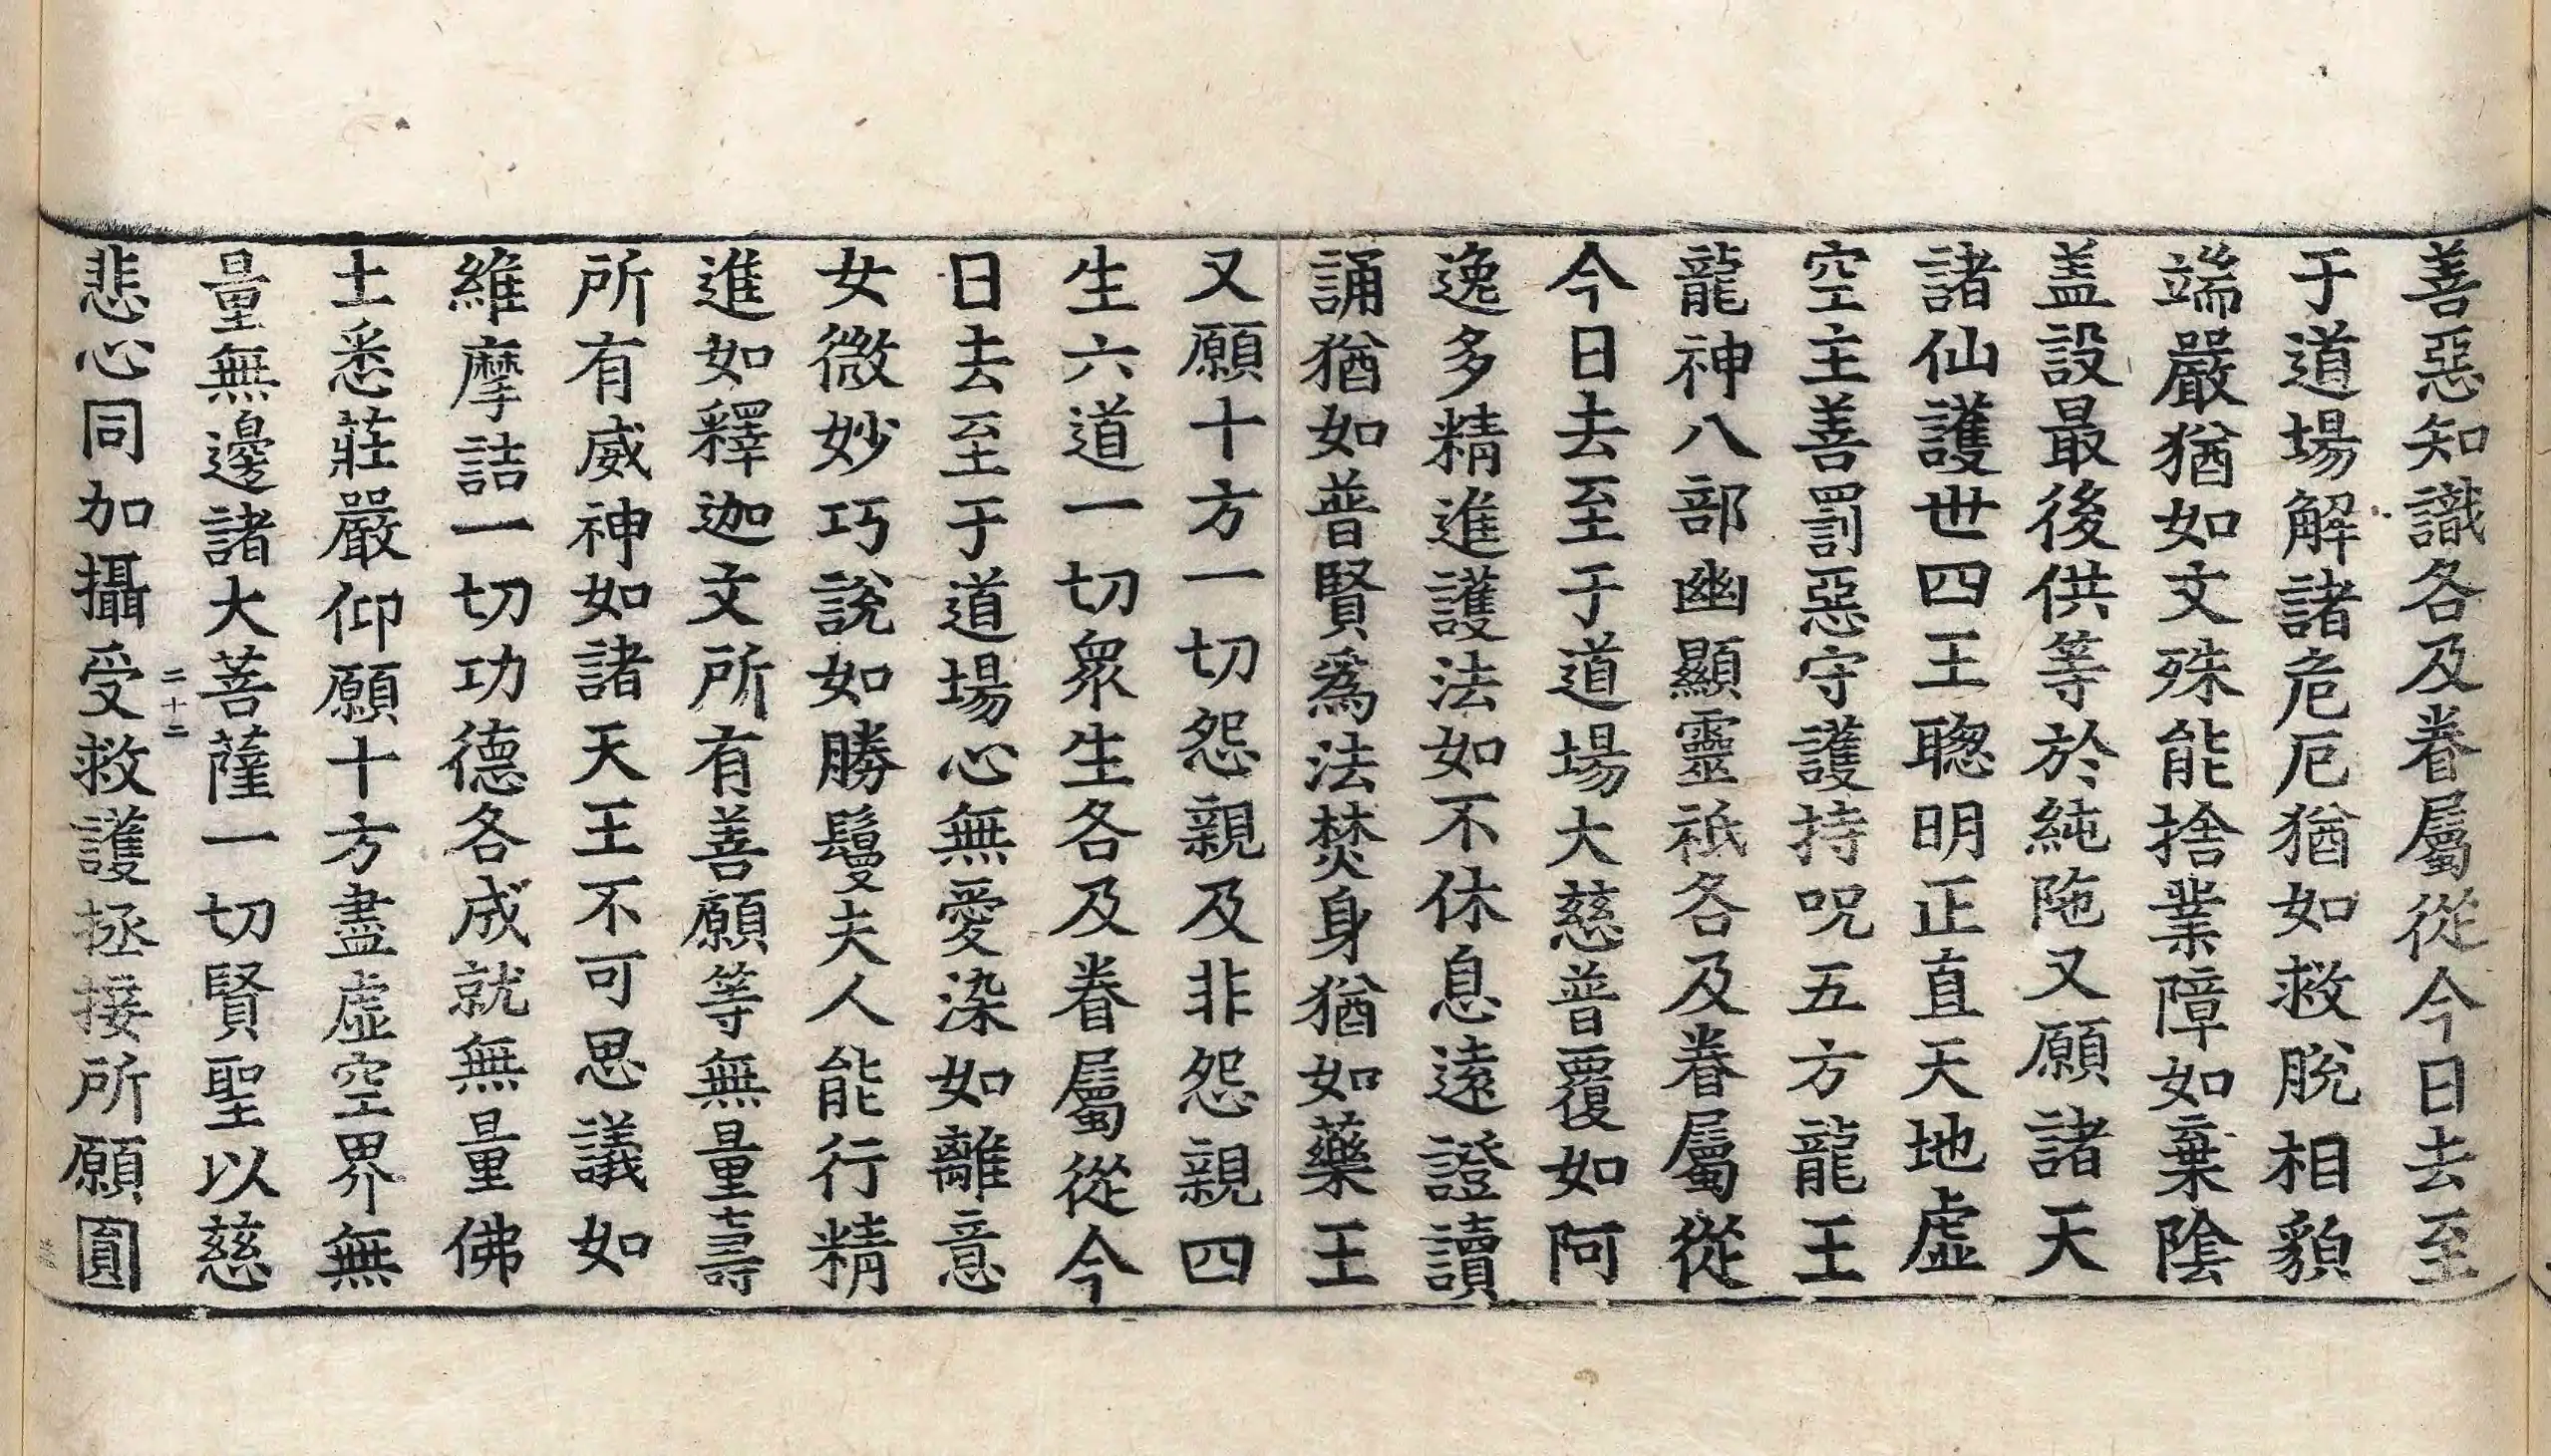 善惡知識各及眷屬從今日去至
于道場解諸危厄猶如救脫相貌
端嚴猶如文殊能捨業障如棄陰
盖設最後供等於純陁又願諸天
諸仙護世四王聦明正直天地虛
空主善罰惡守護持呪五方龍王
龍神八部幽顯靈祇各及眷屬從
今日去至于道場大慈普覆如阿
逸多精進護法如不休息遠證讀
誦猶如普賢爲法焚身猶如藥王
又願十方一切怨親及非怨親四
生六道一切衆生各及眷屬從今
日去至于道場心無愛染如離意
女微妙巧說如勝鬘夫人能行精
進如釋迦文所有善願等無量壽
所有威神如諸天王不可思議如
維摩詰一切功德各成就無量佛
土悉莊嚴仰願十方盡虛空界無
量無邊諸大菩薩一切賢聖以慈
二十二
悲心同加攝受救護拯接所願圓